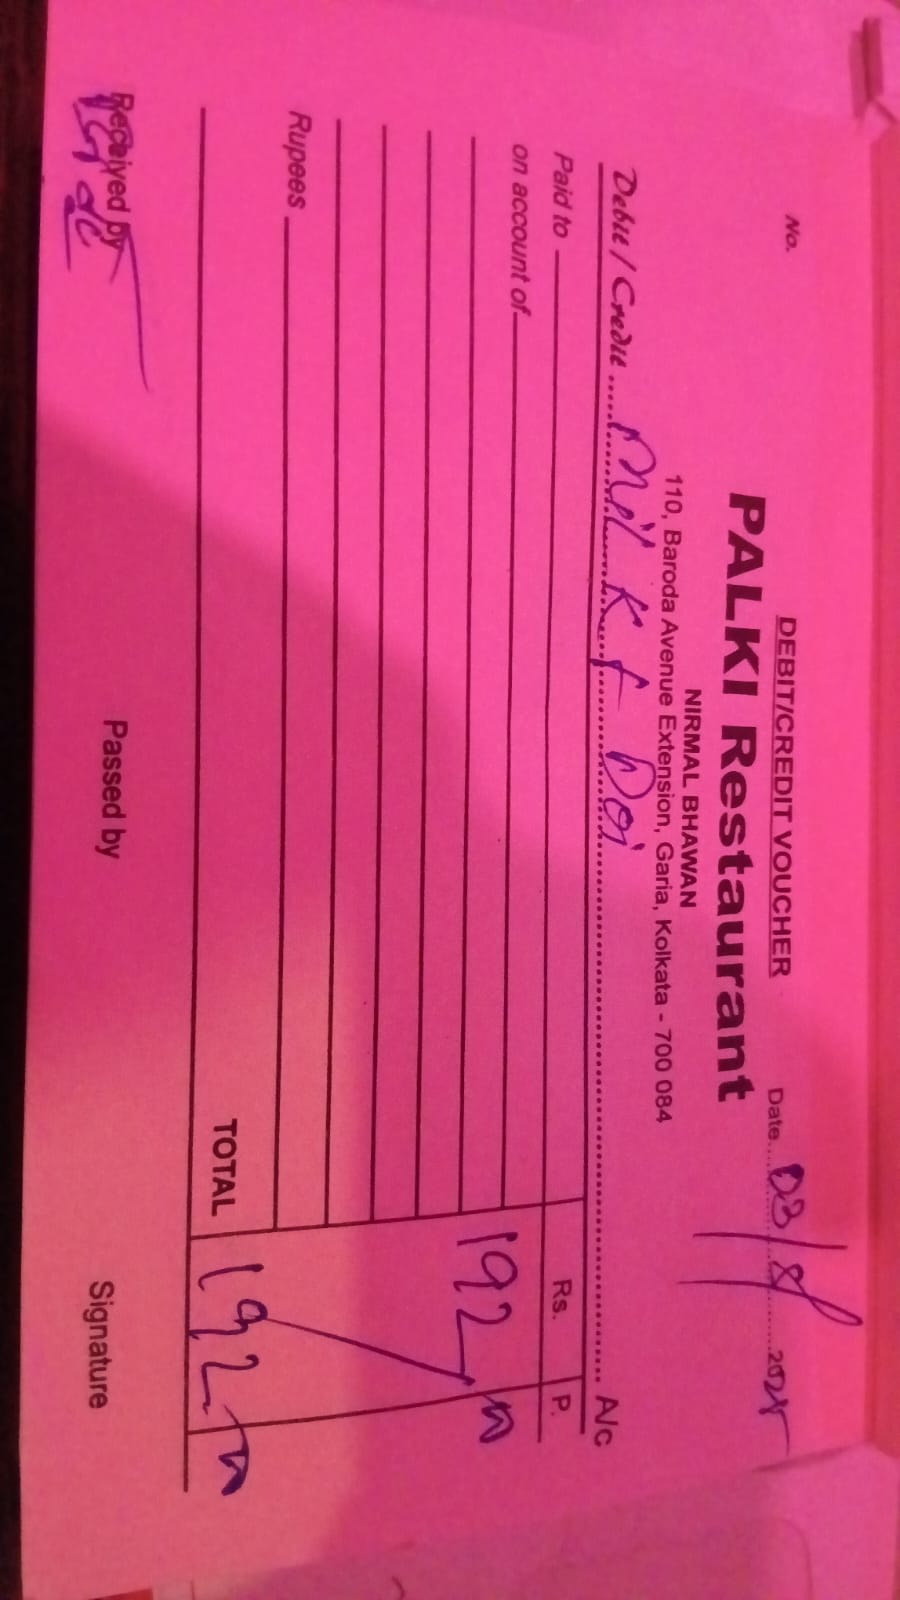 DEBIT/CREDIT VOUCHER
No. Date 03/8/ 2025
PALKI Restaurant
NIRMAL BHAWAN
110, Baroda Avenue Extension, Garia, Kolkata - 700 084
Debit / Credit Milk + Doi A/c
Paid to Rs. P.
on account of
192
Rupees
TOTAL 192
Received by Passed by Signature